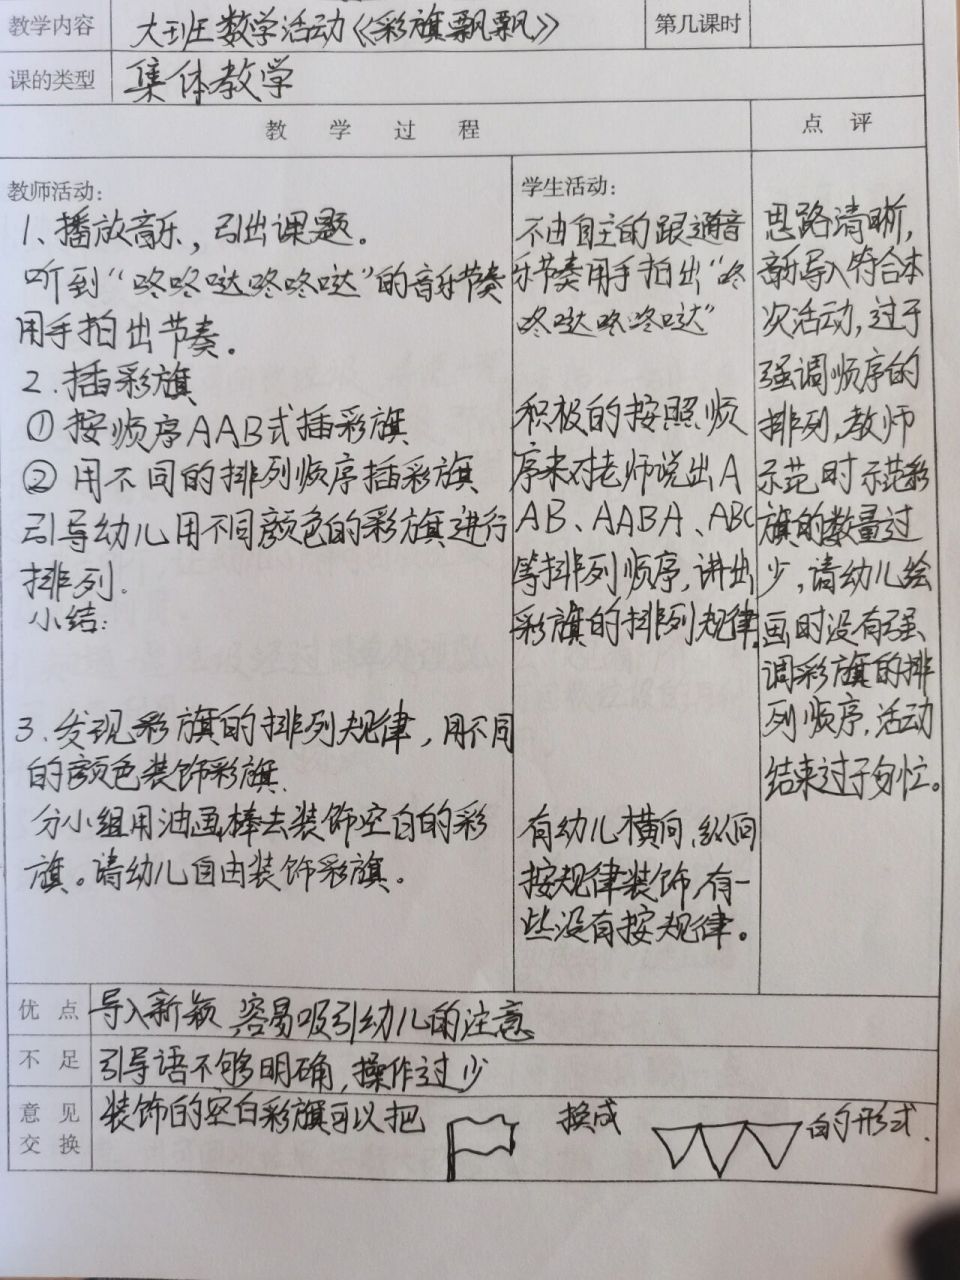 教学内容 大班数学活动《彩旗飘飘》 第几课时
课的类型 集体教学
教 学 过 程 点 评
教师活动：
1、播放音乐，引出课题。
听到“咚咚哒咚咚哒”的音乐节奏
用手拍出节奏。
2.插彩旗
①按顺序AAB式插彩旗
②用不同的排列顺序插彩旗
引导幼儿用不同颜色的彩旗进行
排列.
小结:
3.发现彩旗的排列规律，用不同
的颜色装饰彩旗.
分小组用油画棒去装饰空白的彩
旗。请幼儿自由装饰彩旗。
学生活动：
不由自主的跟随音
乐节奏用手拍出“咚
咚哒咚咚哒”
积极的按照顺
序来对老师说出A
AB、AABA、ABC
等排列顺序,讲出
彩旗的排列规律.
有幼儿横向、纵向
按规律装饰,有一
些没有按规律。
思路清晰,
音乐导入符合本
次活动,过于
强调顺序的
排列,教师
示范时示范彩
旗的数量过
少,请幼儿绘
画时没有强
调彩旗的排
列顺序.活动
结束过于匆忙。
优 点 导入新颖 容易吸引幼儿的注意
不 足 引导语不够明确,操作过少
意 见
交 换
装饰的空白彩旗可以把 换成 的形式.